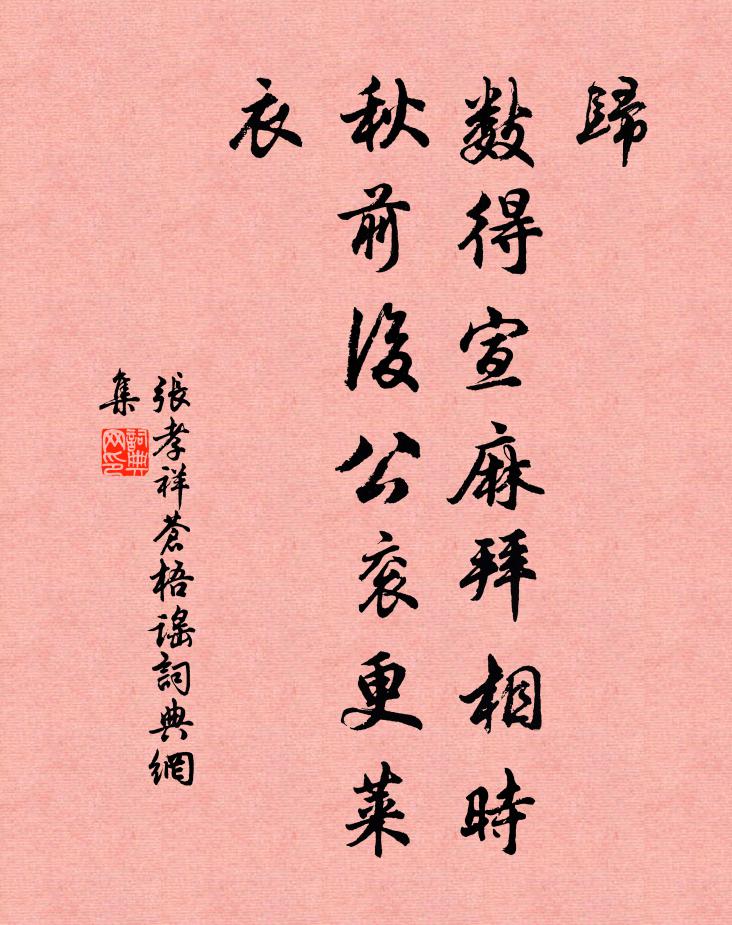 歸
數得宣麻拜相時
秋前後公衮更萊
衣
張孝祥蒼梧謠詞典網
集
詞典网印